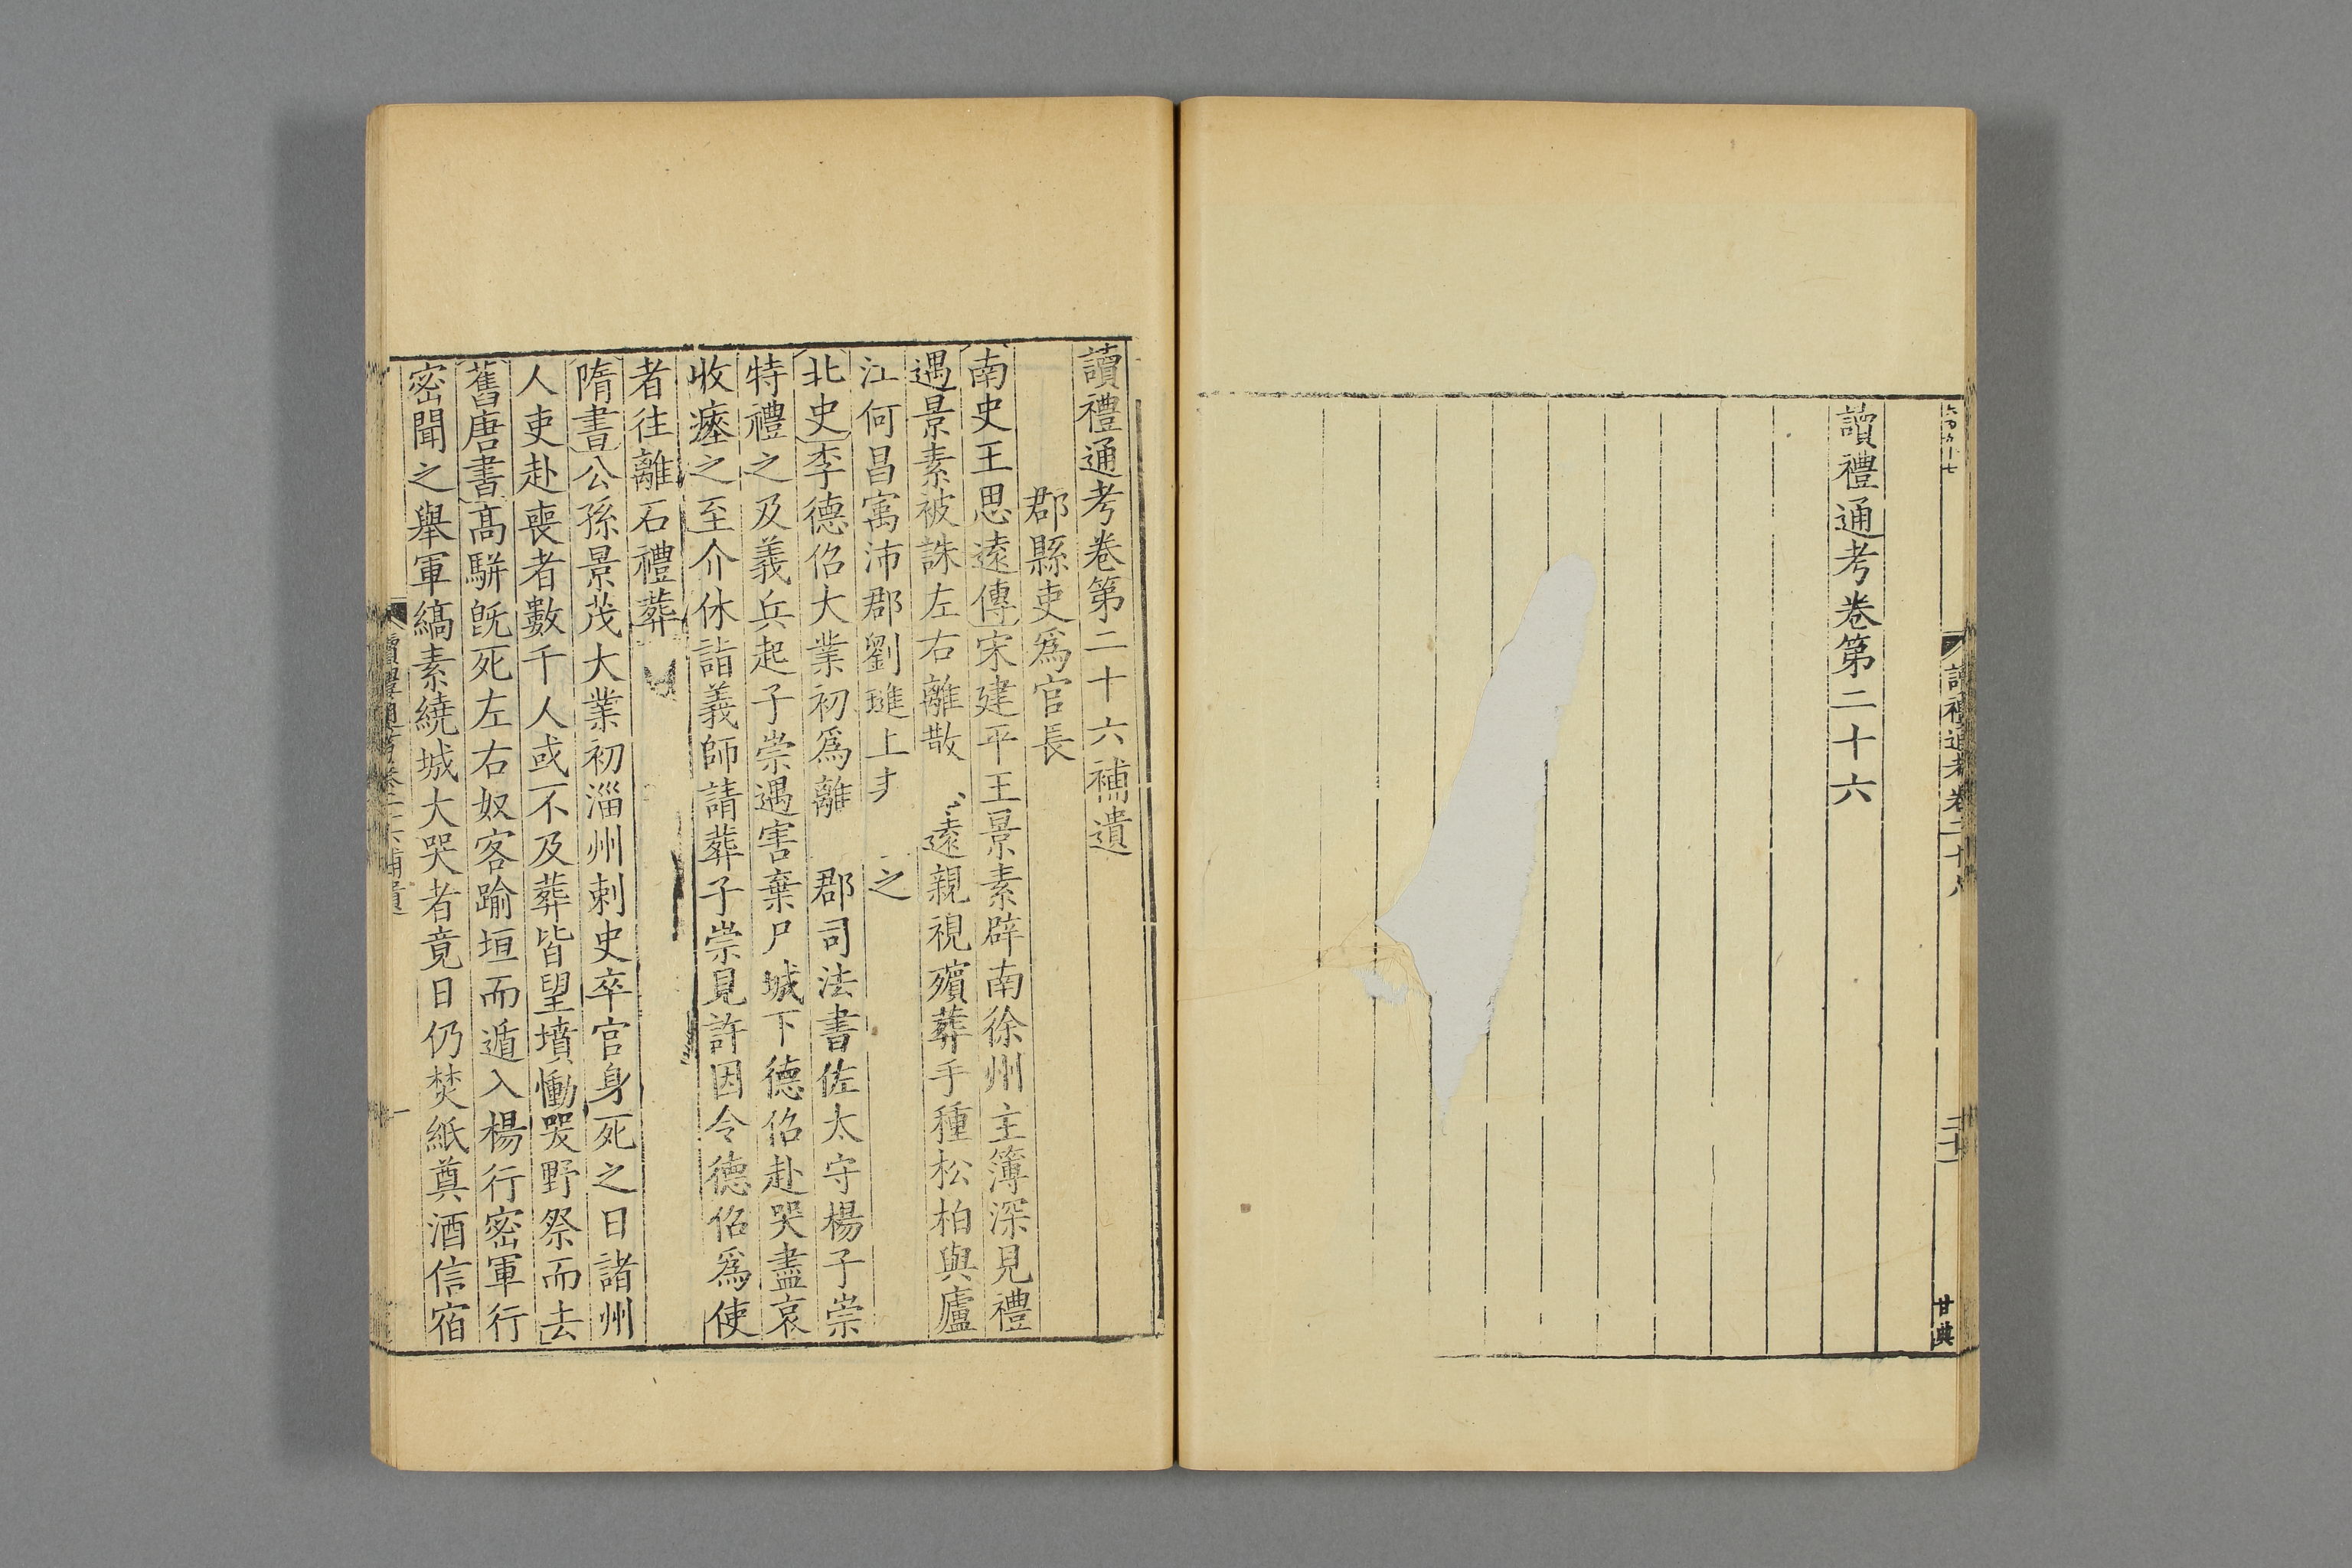 讀禮通考卷第二十六
甘典
讀禮通考卷第二十六補遺
郡縣吏爲官長
南史王思遠傳宋建平王景素辟南徐州主簿深見禮
遇景素被誅左右離散 遠親視殯葬手種松柏與廬
江何昌㝢沛郡劉璡上 之
北史李德佋大業初爲離 郡司法書佐太守楊子崇
特禮之及義兵起子崇遇害棄尸城下德佋赴哭盡哀
收瘞之至介休詣義師請葬子崇見許因令德佋爲使
者往離石禮葬
隋書公孫景茂大業初淄州刺史卒官身死之日諸州
人吏赴喪者數千人或不及葬皆望墳慟哭野祭而去
舊唐書高駢旣死左右奴客踰垣而遁入楊行密軍行
密聞之舉軍縞素繞城大哭者竟日仍焚紙奠酒信宿